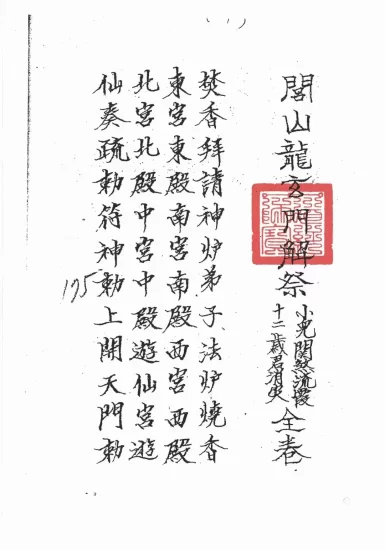 (1)
閭山龍玄門解祭 小兒關煞流霞 十二歲君消失 全卷
焚香拜請神炉弟子法炉燒香
東宮東殿南宮南殿西宮西殿
北宮北殿中宮中殿遊仙宮遊
仙奏疏勅符神勅上開天門勅
175